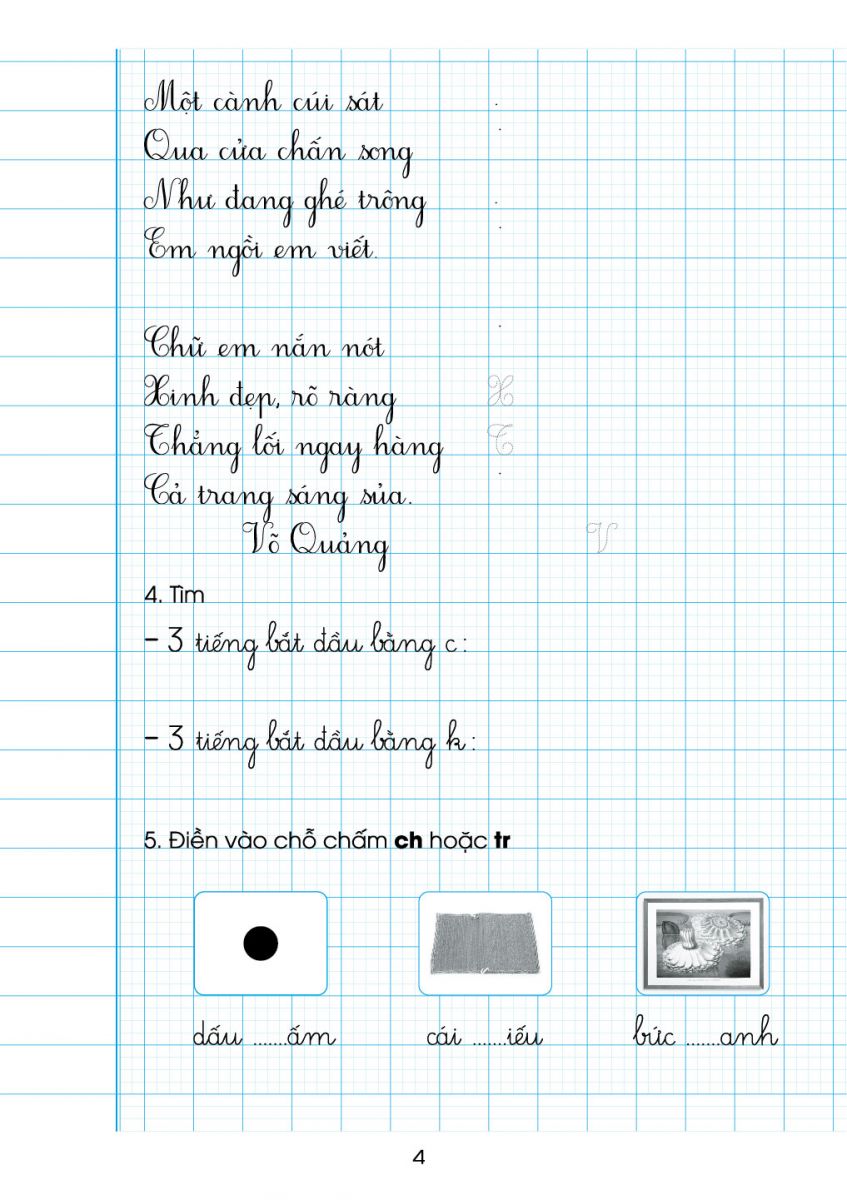 Một cành cúi sát
Qua cửa chấn song
Như đang ghé trông
Em ngồi em viết.
Chữ em nắn nót
Xinh đẹp, rõ ràng X
Thẳng lối ngay hàng T
Cả trang sáng sủa.
Võ Quảng V
4. Tìm
– 3 tiếng bắt đầu bằng c:
– 3 tiếng bắt đầu bằng k:
5. Điền vào chỗ chấm ch hoặc tr
dấu ......ấm cái ......iếu bức ......anh
4